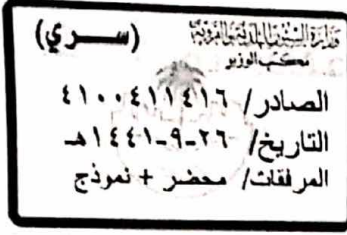 وزارة الشئون البلدية والقروية (ســري)
مكتب الوزير
الصادر/ ٤١٠٠٤١١٤١٦
التاريخ/ ٢٦-٩-١٤٤١هـ
المرفقات/ محضر + نموذج